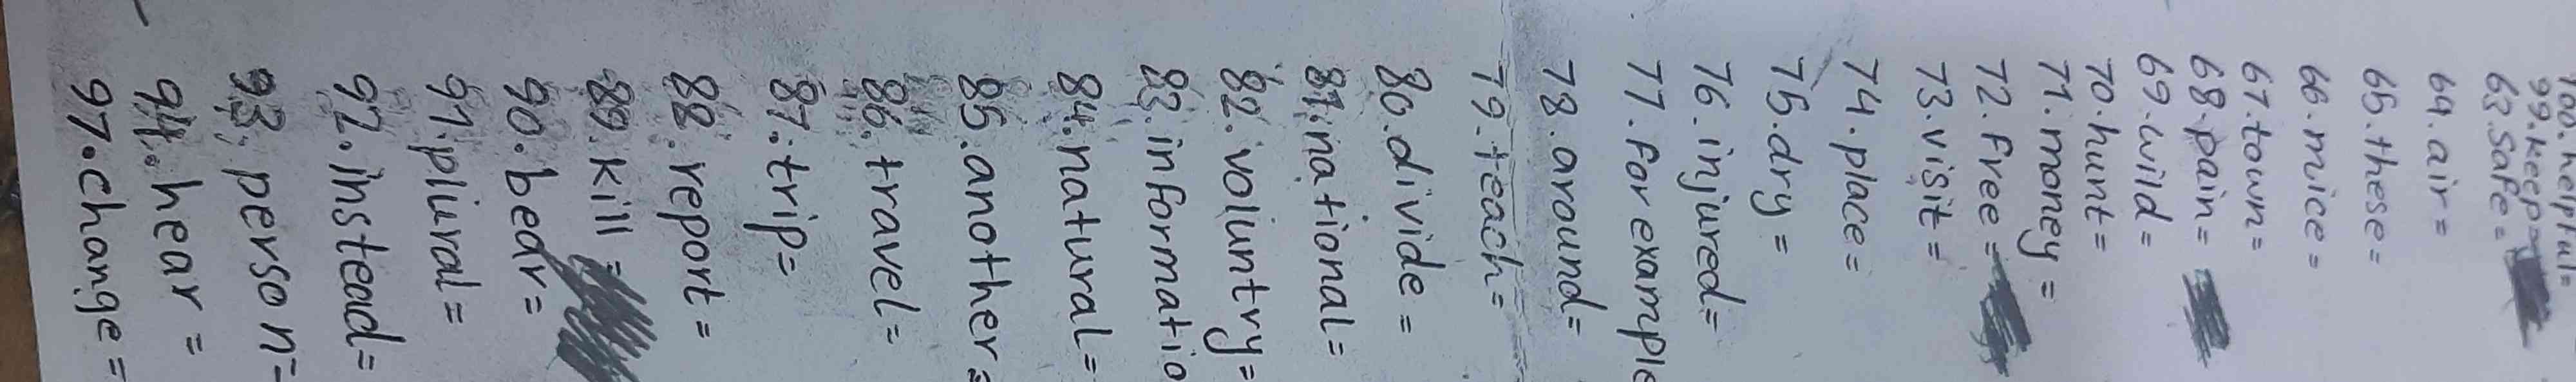 100. helpful=
99. keep=
63. safe=
64. air=
65. these=
66. mice=
67. town=
68. pain=
69. wild=
70. hunt=
71. money=
72. free=
73. visit=
74. place=
75. dry=
76. injured=
77. for example
78. around=
79. teach=
80. divide=
81. national=
82. voluntry=
83. informatio
84. natural=
85. another=
86. travel=
87. trip=
88. report=
89. kill=
90. bear=
91. plural=
92. instead=
93. person=
94. hear=
97. change=